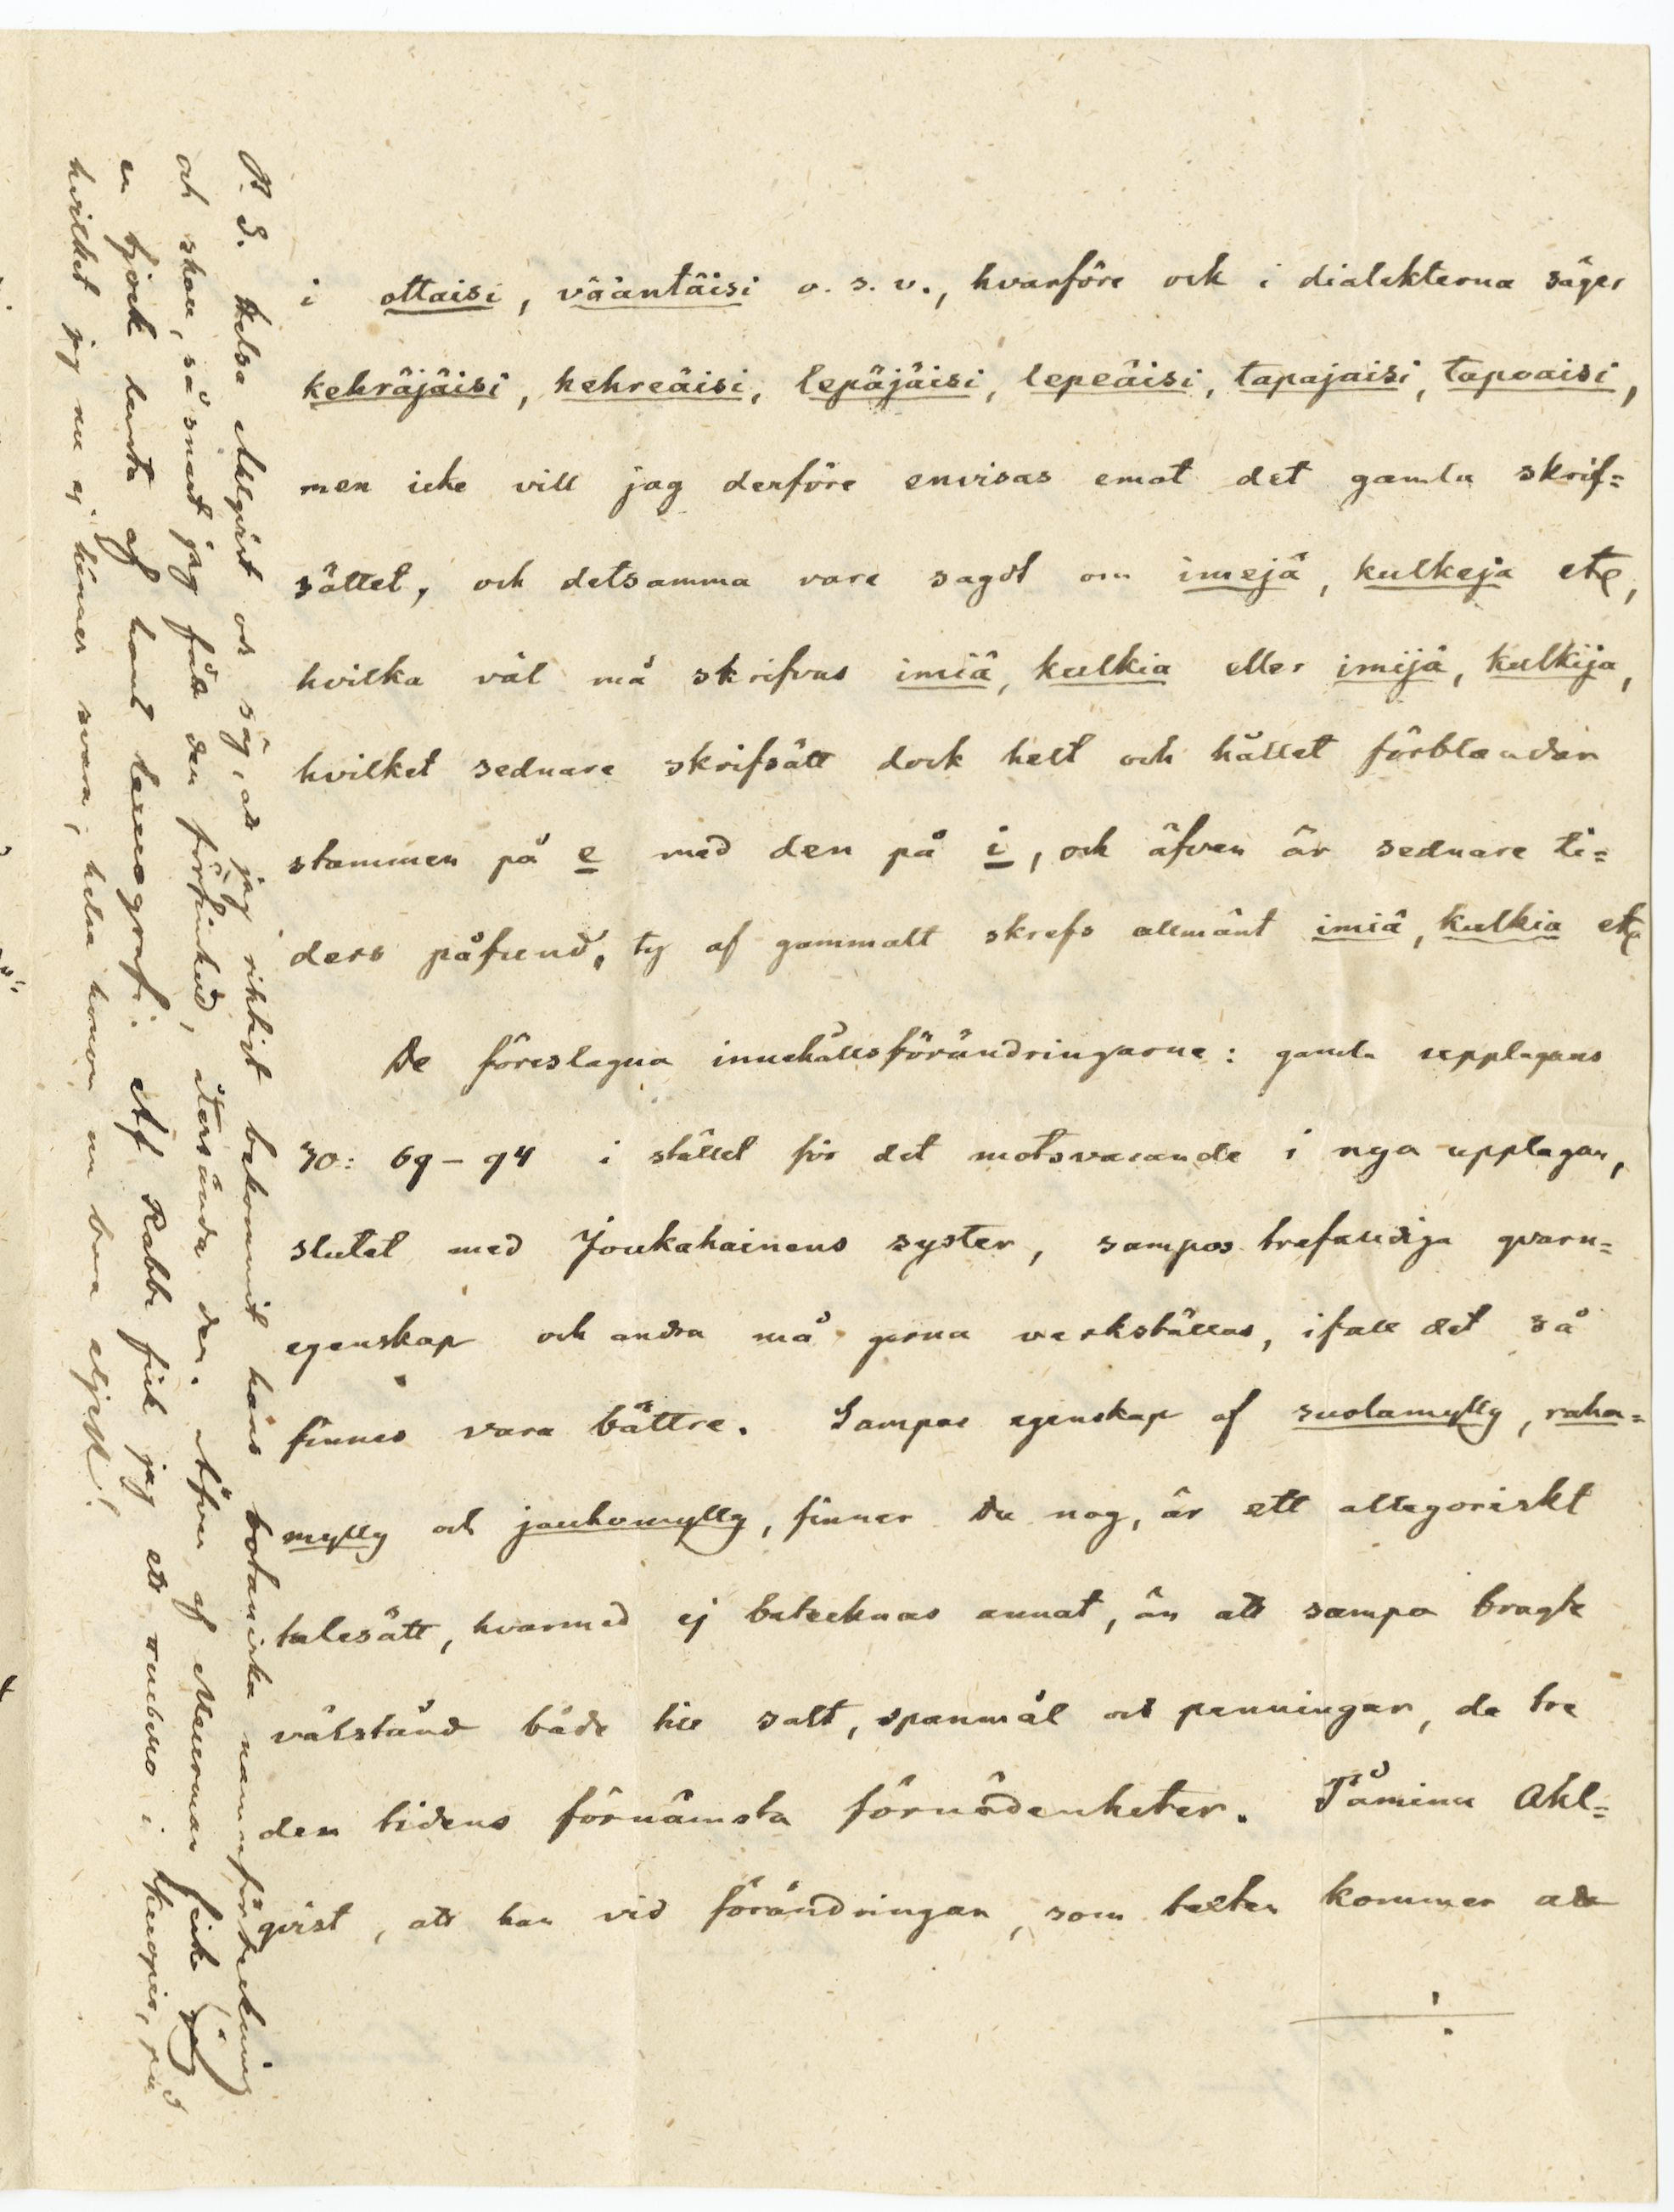 i ottaisi, vääntäisi o. s. v., hvarföre ock i dialekterna säges
kehräjäisi, kehreäisi, lepäjäisi, lepeäisi, tapajaisi, tapoaisi,
men icke vill jag derföre envisas emot det gamla skrif=
sättet, och detsamma vare sagdt om imejä, kulkeja etc,
hvilka väl må skrifvas imiä, kulkia eller imijä, kulkija,
hvilket sednare skrifsätt dock helt och hållet förblandar
stammen på e med den på i, och äfven är sednare ti=
ders påfund, ty af gammalt skrefs allmänt imiä, kulkia etc
De föreslagna innehållsförändringarne: gamla upplagans
30: 69-94 i stället för det motsvarande i nya upplagan,
slutet med Joukahainens syster, sampos trefaldiga qvarn=
egenskap och andra må gerna verkställas, ifall det så
finnes vara bättre. Sampos egenskap af suolamylly, raha=
mylly och jauhomylly, finner Du nog, är ett allegoriskt
talesätt, hvarmed ej betecknas annat, än att sampo bragte
välstånd både till salt, spanmål och penningar, de tre
den tidens förnämsta förnödenheter. Påminn Ahl=
qvist, att han vid förändringar, som texten kommer att
P. S. Helsa Ahlqvist och säg, att jag riktigt bekommit hans botaniska namnförteckning
och skall, så snart jag fått den förökad, återsända den. Äfven af Meurman fick jag
en tjock lunta af hans lexicografi. Af Rabbe fick jag ett rubbuo i Kuopio, på
hvilket jag nu ej hinner svara; helsa honom nu bara eljest!